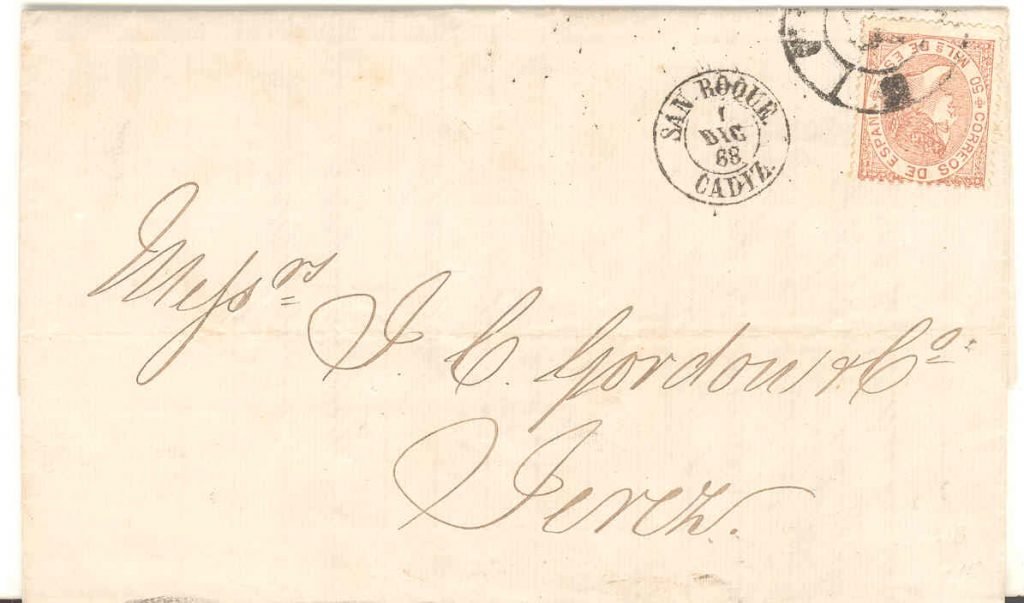 SAN ROQUE.
1
DIC
68
CADIZ.
CORREOS DE ESPAÑA
50 MILS DE ES
Messrs J. C. Gordon & Co.
Jerez.